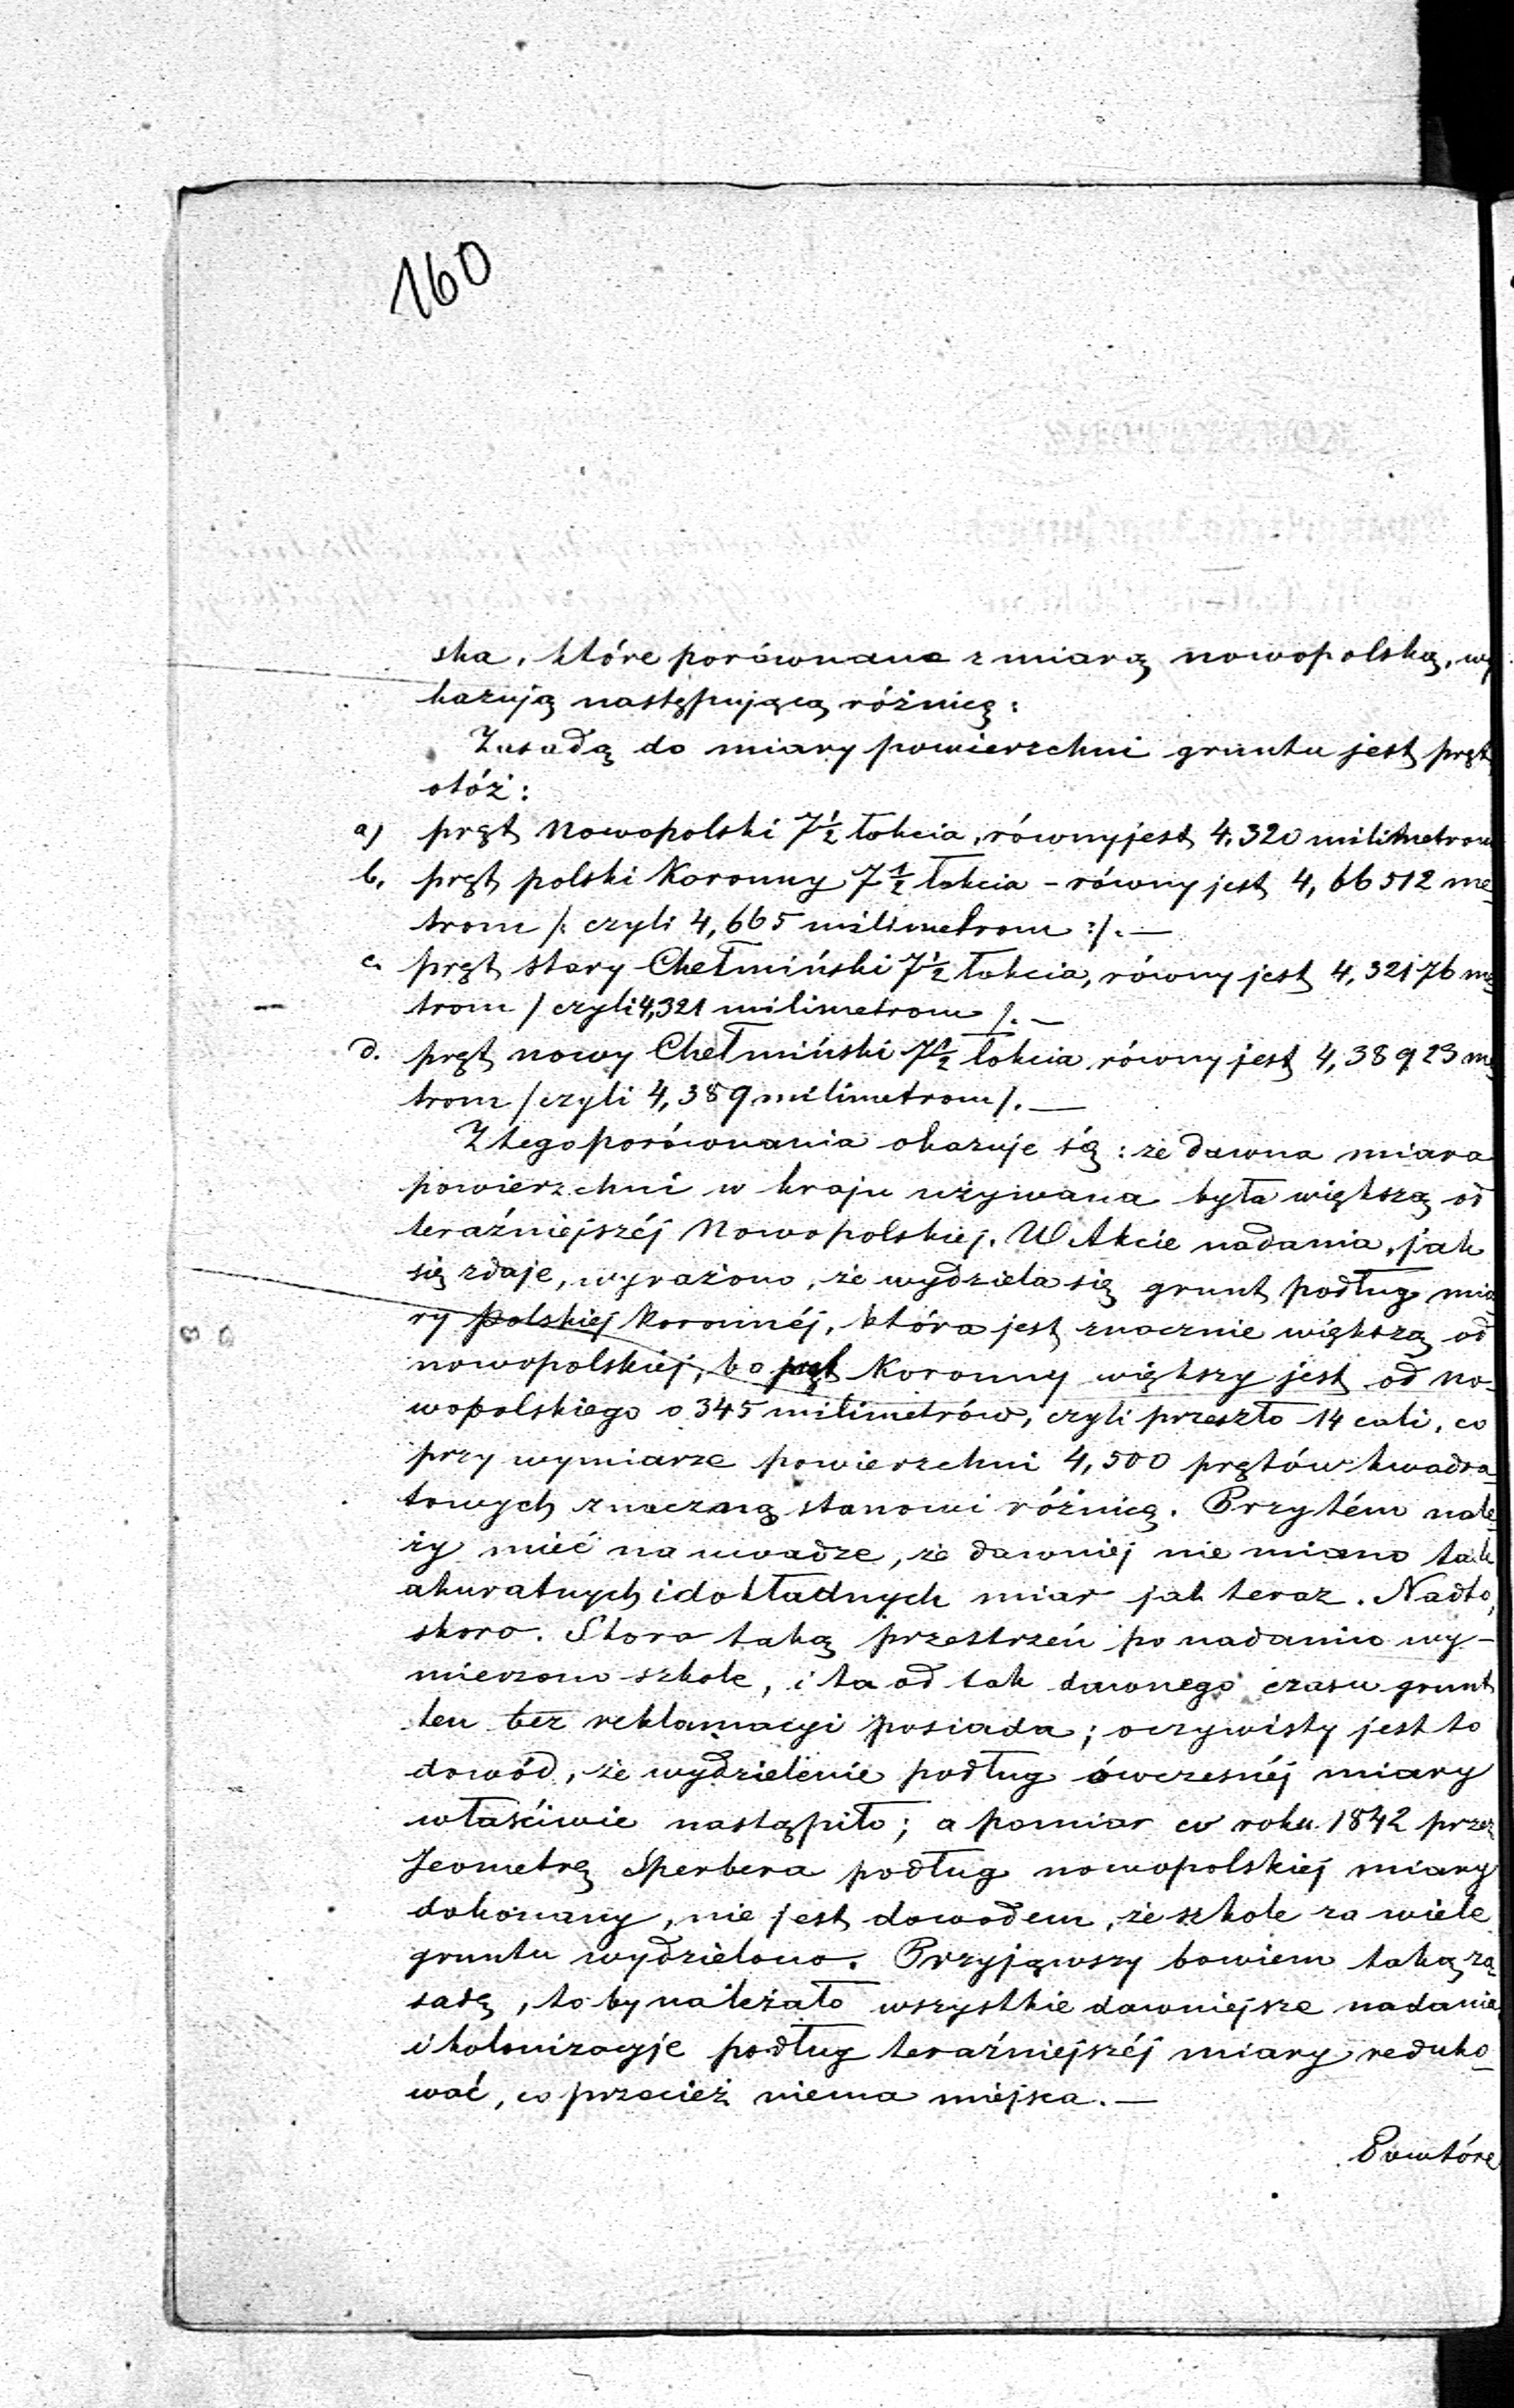 160
ska, które porównane z miarą nowopolską, wy
kazują następującą różnicę:
Zasadą do miary powierzchni gruntu jest pręt
otóż:
a) pręt Nowopolski 7 1/2 łokcia, równy jest 4,320 milimetrom
b. pręt polski Koronny 7 1/2 łokcia – równy jest 4,66512 me-
trom /: czyli 4,665 milimetrom :/. —
c. pręt stary Chełmiński 7 1/2 łokcia, równy jest 4,32176 me
trom / czyli 4,321 milimetrom /. —
d. pręt nowy Chełmiński 7 1/2 łokcia, równy jest 4,38923 me
trom / czyli 4,389 milimetrom /. —
Z tego porównania okazuje się: że dawna miara
powierzchni w kraju używana była większą od
teraźniejszéj Nowopolskiej. W Akcie nadania, jak
się zdaje, wyrażono, że wydziela się grunt podług mia
ry polskiej koronnéj, która jest znacznie większą od
nowopolskiej, bo pręt Koronny większy jest od no-
wopolskiego o 345 milimetrów, czyli przeszło 14 cali, co
przy wymiarze powierzchni 4,500 prętów kwadra
towych znaczną stanowi różnicę. Przytém nale-
ży mieć na uwadze, że dawniej nie miano tak
akuratnych i dokładnych miar jak teraz. Nadto,
skoro. Skoro taką przestrzeń po nadaniu wy-
mierzono szkole, i ta od tak dawnego czasu grunt
ten bez reklamacyi posiada; oczywisty jest to
dowód, że wydzielenie podług ówczesnéj miary
właściwie nastąpiło; a pomiar w roku 1842 przez
Jeometrę Sperbera podług nowopolskiej miary
dokonany, nie jest dowodem, że szkole za wiele
gruntu wydzielono. Przyjąwszy bowiem taką za
sadę, to by należało wszystkie dawniejsze nadania
i kolonizacyje podług teraźniejszéj miary reduko-
wać, co przecież niema miejsca. —
Powtóre